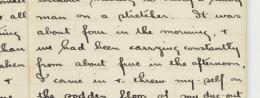 man on a stretcher. It was
about four in the morning, +
we had been carrying constantly
from about five in the afternoon.
I came in +. threw my-self on
the sodden floor of my dug-out